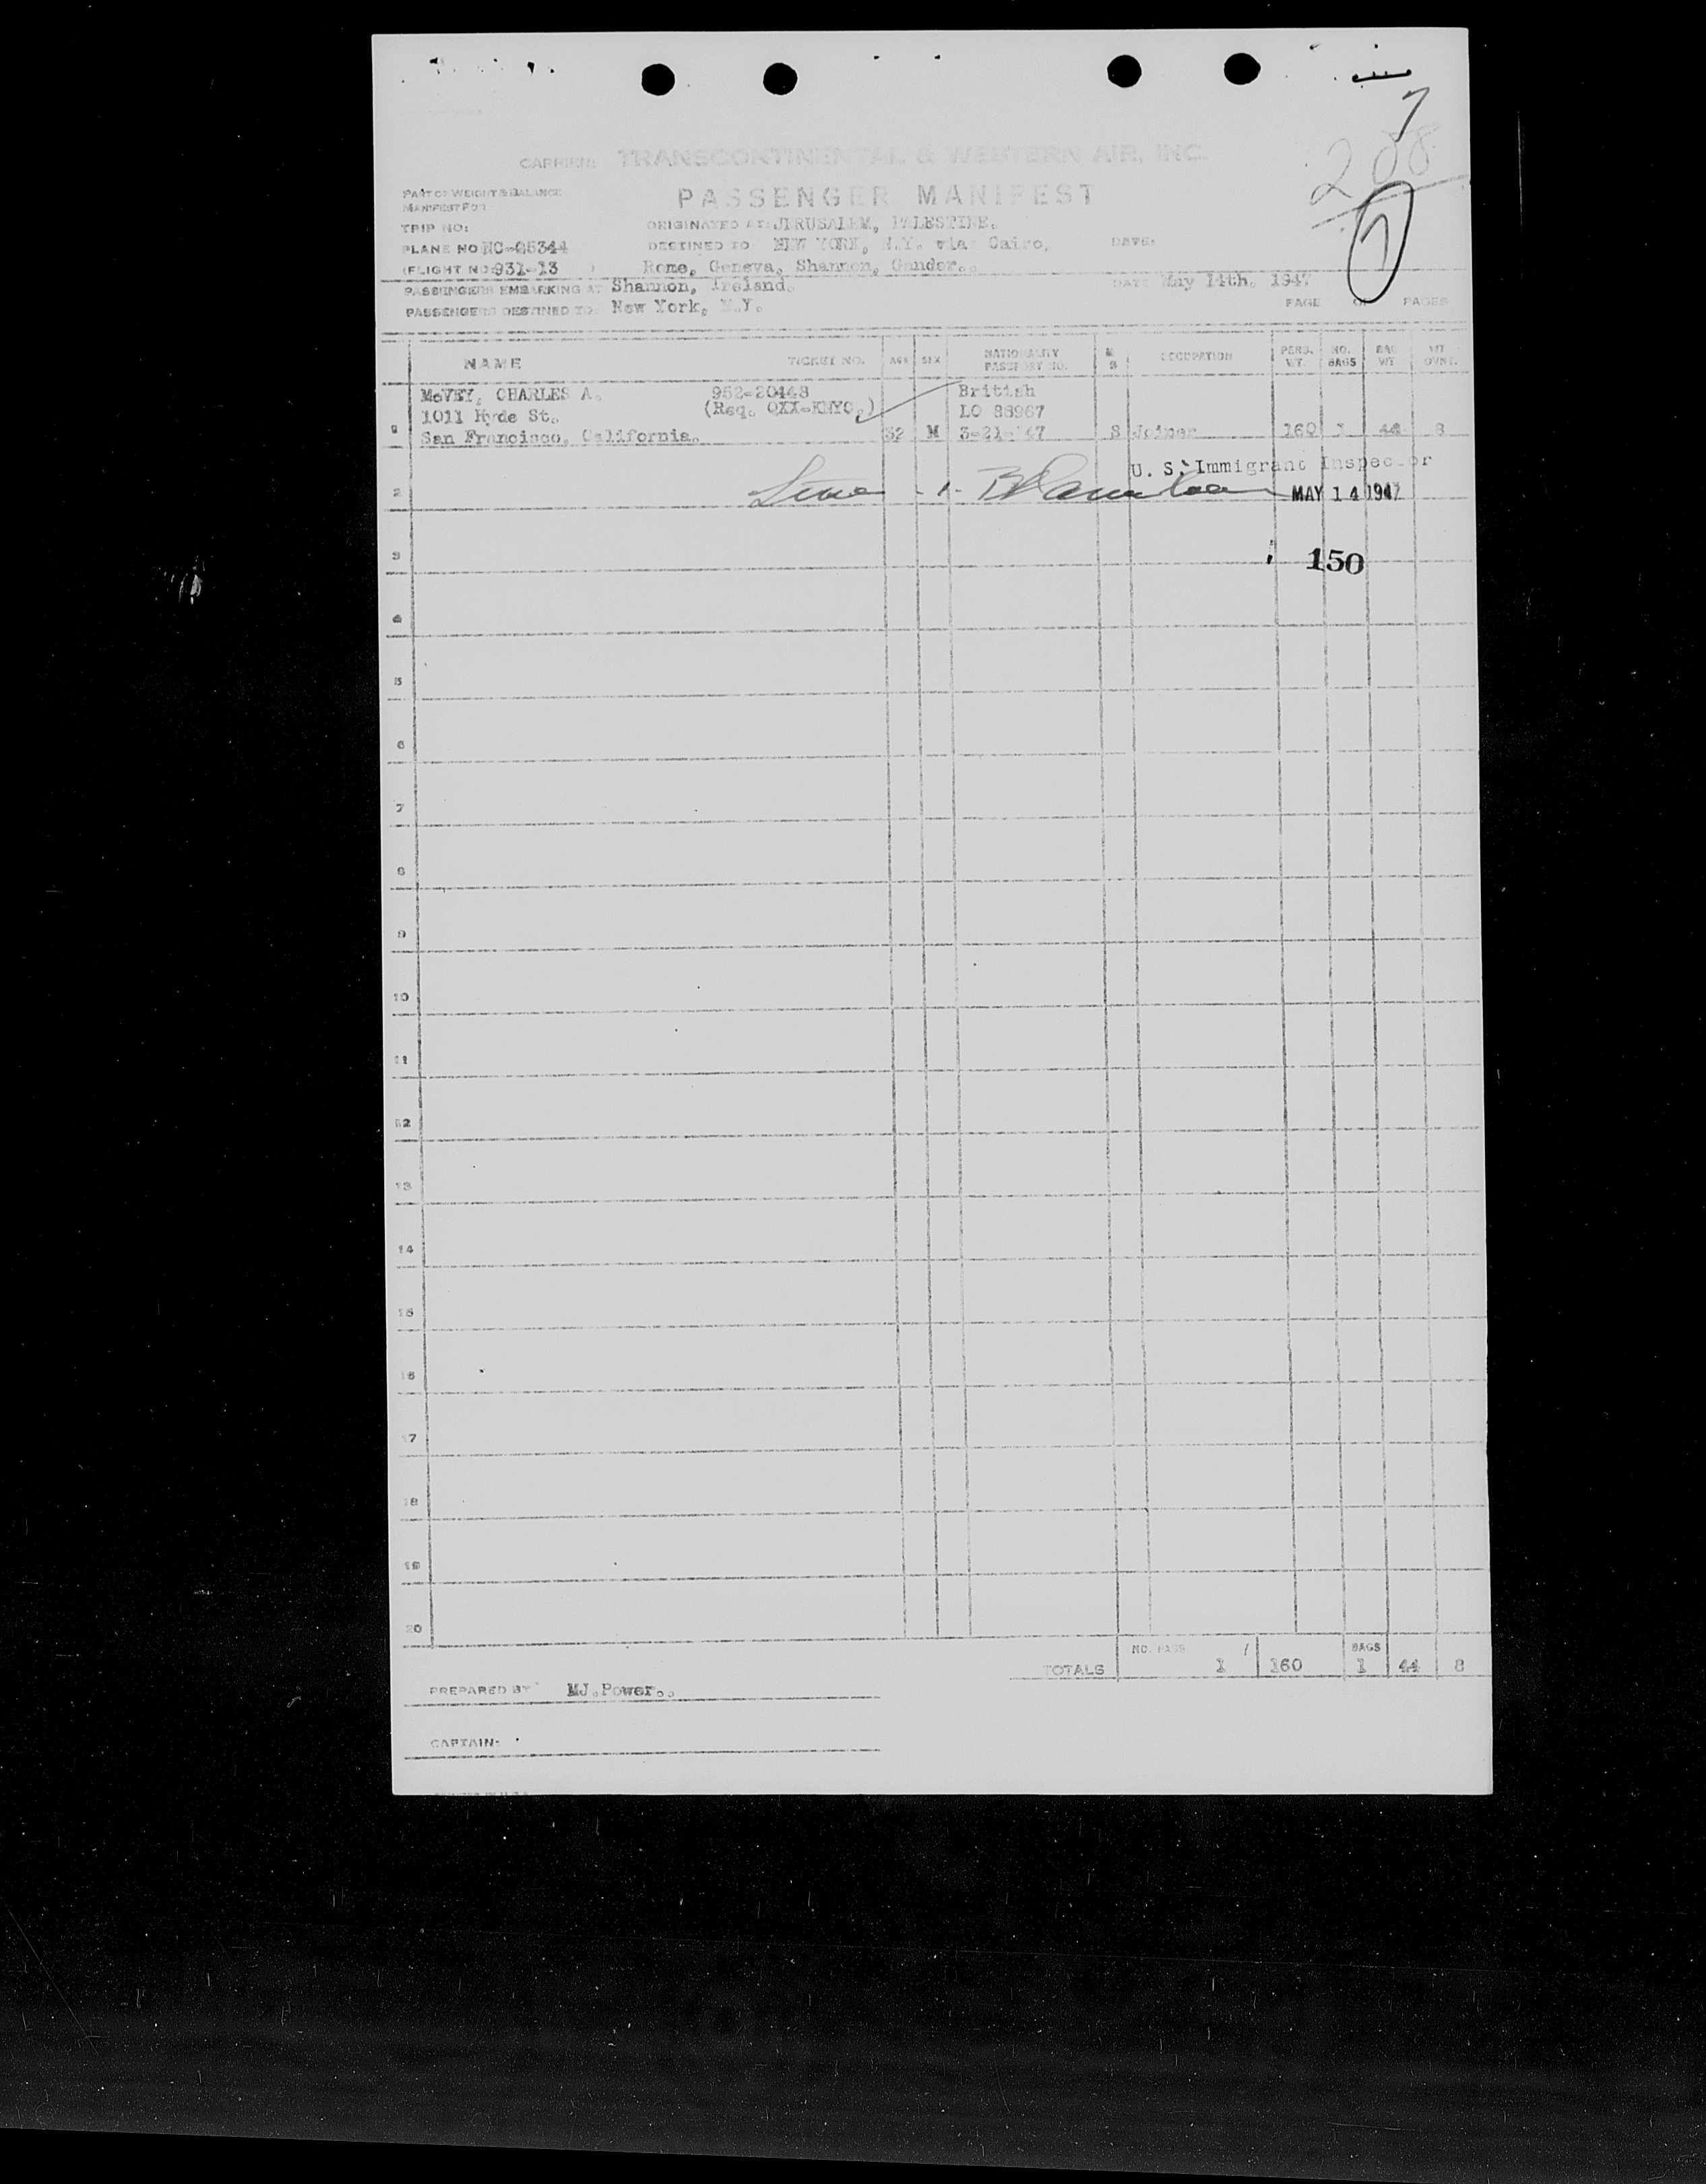 7
208
CARRIER: TRANSCONTINENTAL & WESTERN AIR, INC.
PART OF WEIGHT & BALANCE
MANIFEST FOR
PASSENGER MANIFEST
TRIP NO:
ORIGINATED AT: JERUSALEM, PALESTINE.
PLANE NO NC-05344
DESTINED TO: NEW YORK, N.Y. via: Cairo,
DATE:
(FLIGHT NO: 931-13 )
Rome, Geneva, Shannon, Gander.
PASSENGERS EMBARKING AT Shannon, Ireland.
DATE May 14th. 1947
PASSENGERS DESTINED TO: New York, N.Y.
PAGE OF PAGES
NAME TICKET NO. AGE SEX NATIONALITY PASSPORT NO. M S OCCUPATION PERS. WT. NO. BAGS BAG WT WT OVWT.
McVEY, CHARLES A. 952-20448 British
1011 Hyde St. (Req. QXX-KNYC.) LO 88967
San Francisco, California. 52 M 3-21-'47 S Joiner 160 1 44 8
U. S. Immigrant Inspector
2 MAY 14 1947
3 150
4
5
6
7
8
9
10
11
12
13
14
15
16
17
18
19
20
TOTALS NO. PASS 1 / 160 BAGS 1 44 8
PREPARED BY MJ.Power..
CAPTAIN: